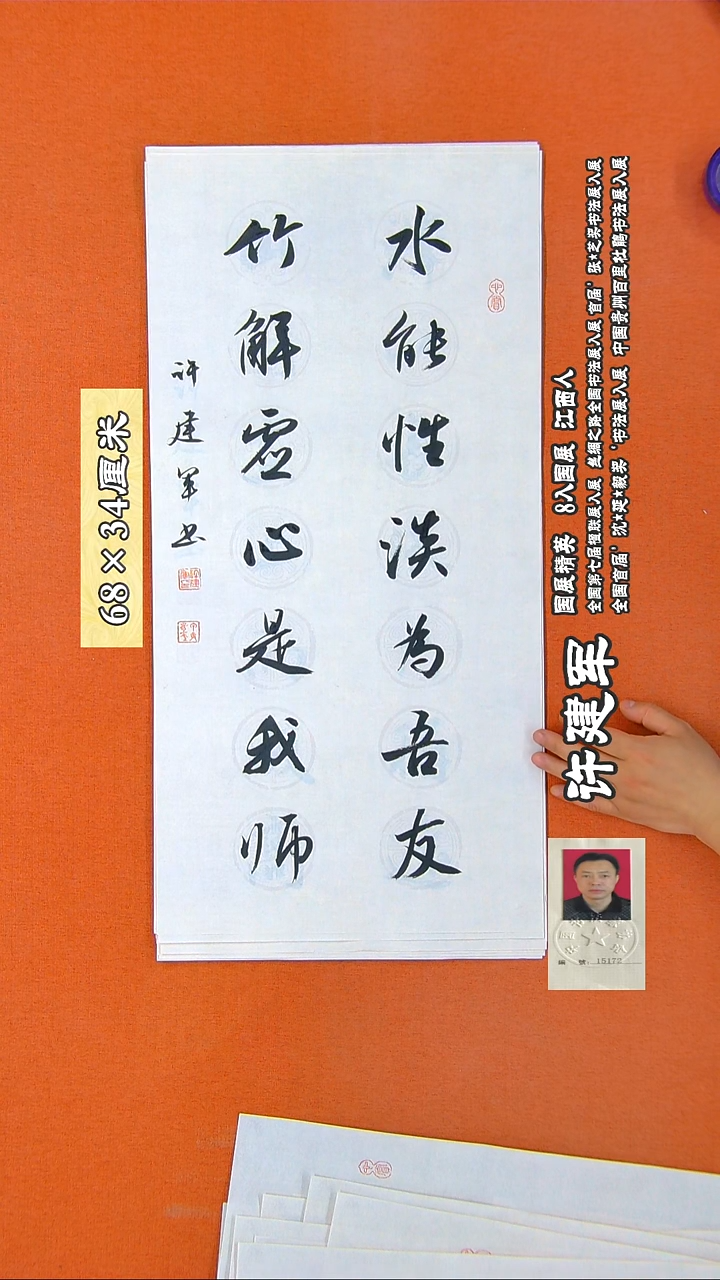 水能性淡為吾友
竹解虛心是我师
许建军书
68×34厘米
许建军
国展精英 8入国展 江西人
全国第七届楹联展入展 丝绸之路全国书法展入展 首届'张★芝奖书法展入展
全国首届'沈★延★毅奖'书法展入展 中国贵州百里杜鹃书法展入展
編 號: 15172